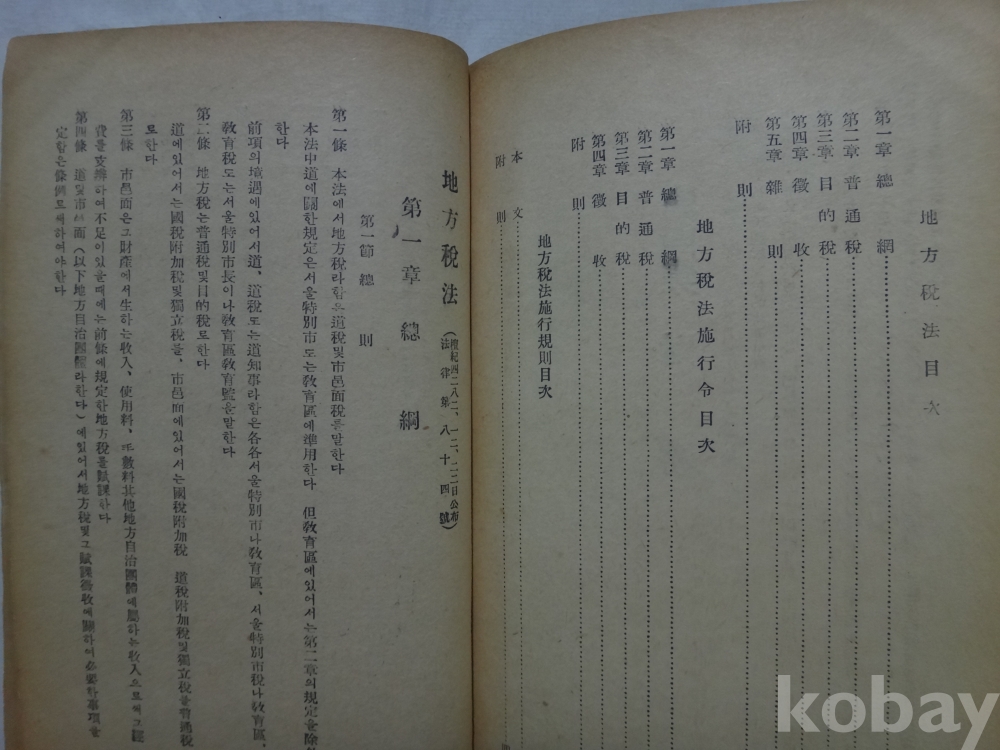 地方稅法目次
第一章 總 綱
第二章 普通稅
第三章 目的稅
第四章 徵 收
第五章 雜 則
附 則
地方稅法施行令目次
第一章 總 綱
第二章 普通稅
第三章 目的稅
第四章 徵 收
附 則
地方稅法施行規則目次
本 文
附 則
地方稅法 (檀紀四二八二、一二、二二日公布 法律第八十四號)
第一章 總 綱
第一節 總 則
第一條 本法에서地方稅라함은道稅및市邑面稅를말한다
本法中道에關한規定은서울特別市또는敎育區에準用한다 但敎育區에있어서는第二章의規定을除
한다
前項의境遇에있어서道、道稅또는道知事라함은各各서울特別市나敎育區、서울特別市稅나敎育區、
敎育稅또는서울特別市長이나敎育區敎育監을말한다
第二條 地方稅는普通稅및目的稅로한다
道에있어서는國稅附加稅및獨立稅를、市邑面에있어서는國稅附加稅 道稅附加稅및獨立稅를普通稅
로한다
第三條 市邑面은그財產에서生하는收入、使用料、手數料其他地方自治團體에屬하는收入으로써그經
費를支辨하여不足이있을때에는前條에規定한地方稅를賦課한다
第四條 道및市邑面(以下地方自治團體라한다)에있어서地方稅및그賦課徵收에關하여必要한事項을
定함은條例로써하여야한다
kobay